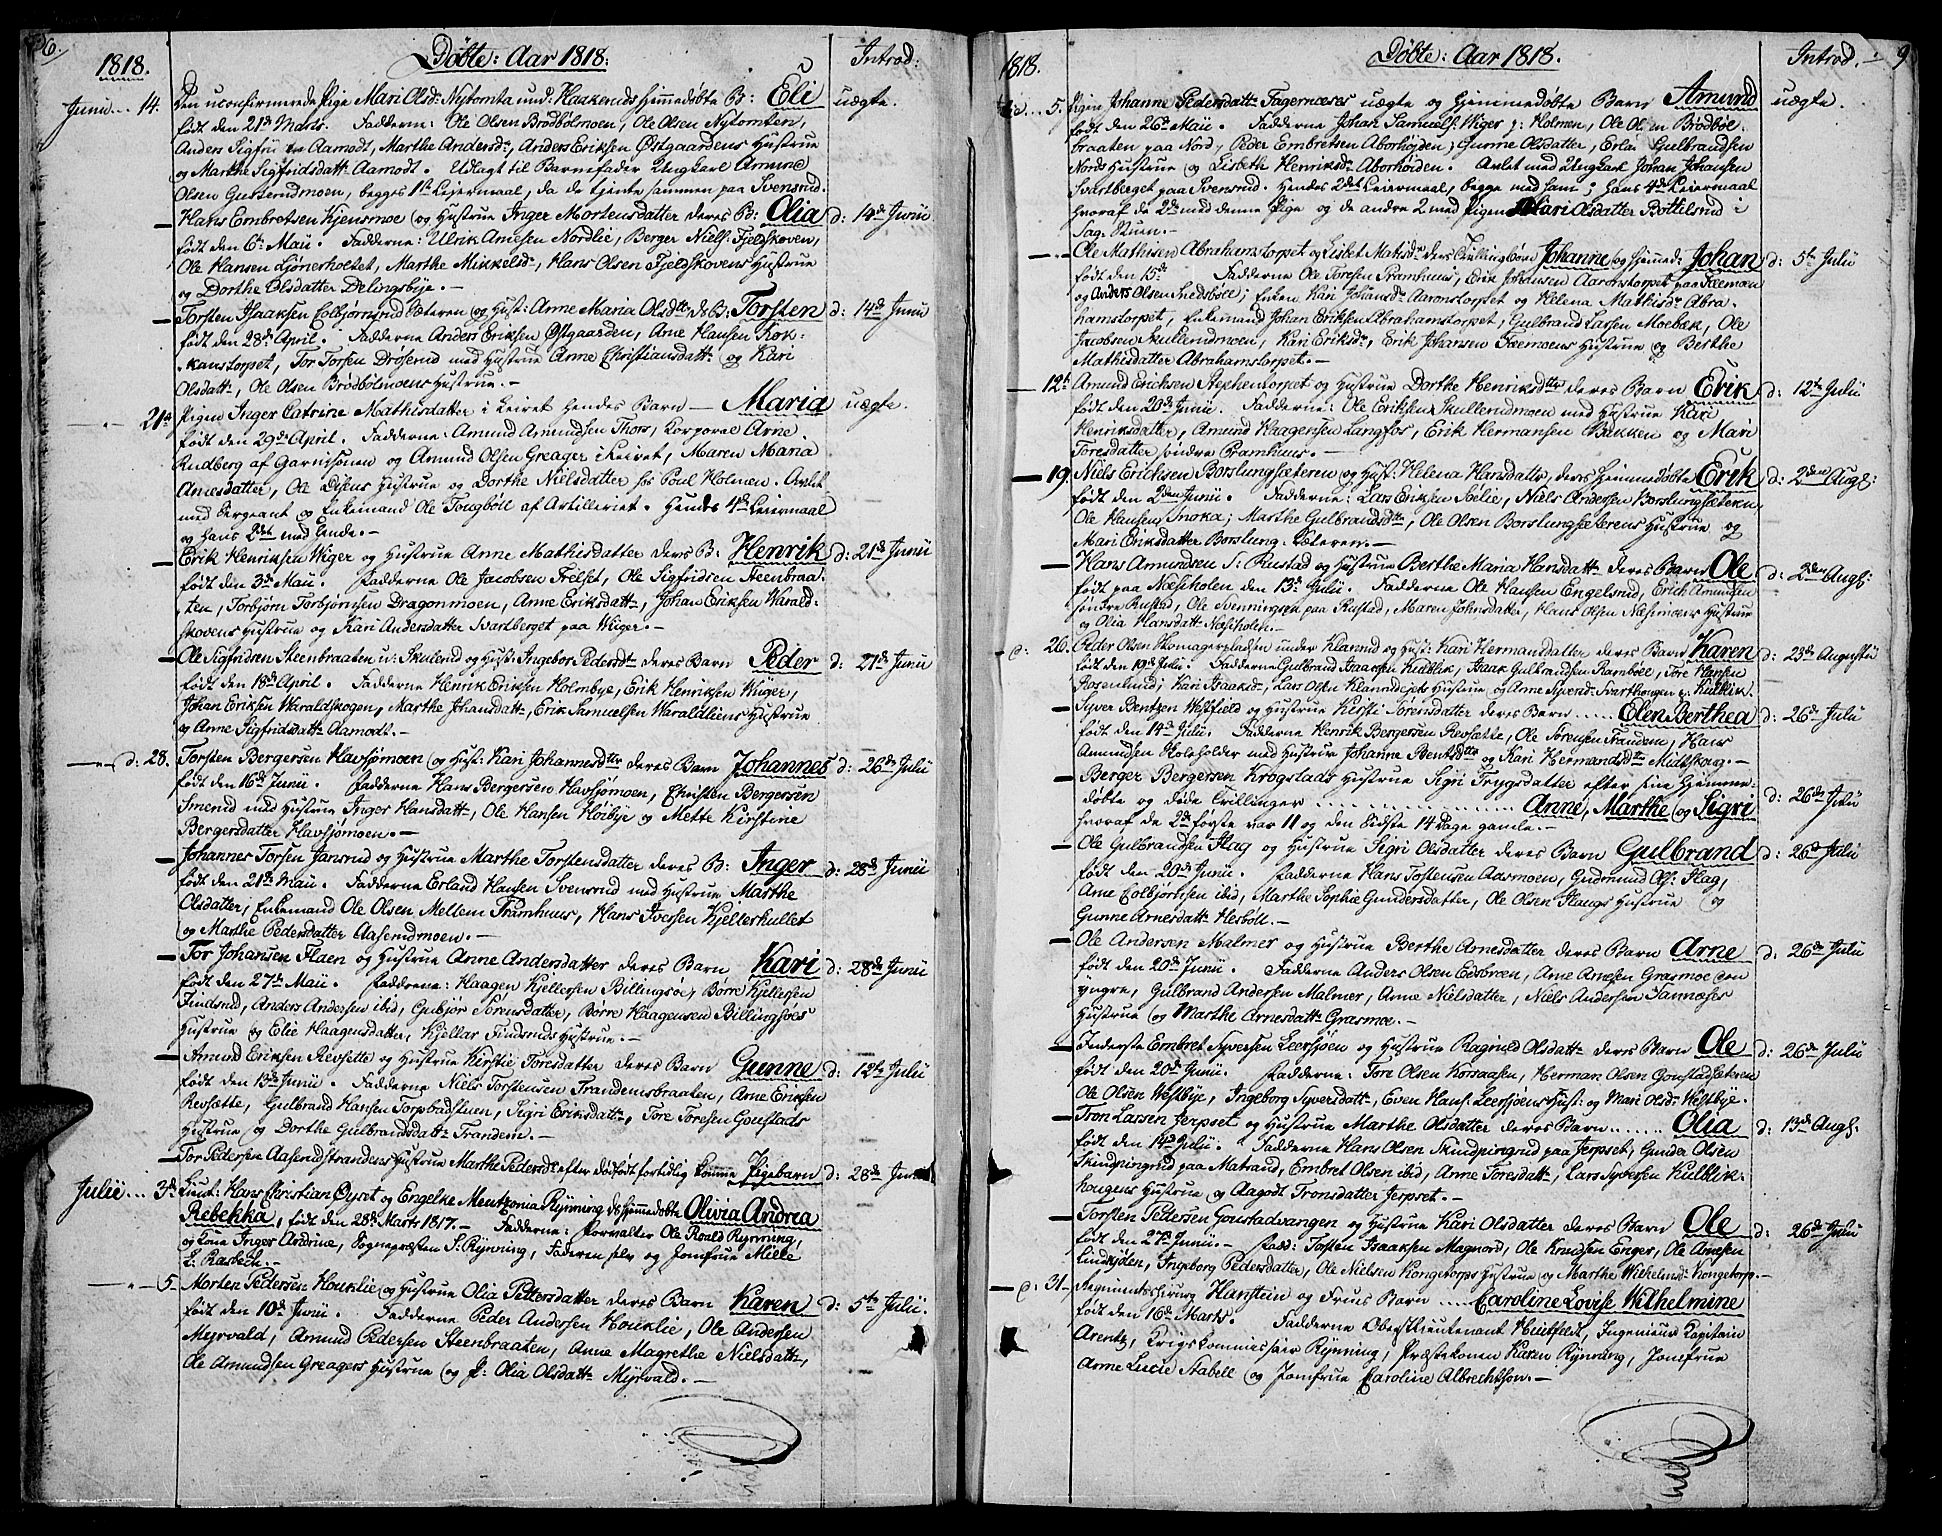 96.
1818. Döbte: Aar 1818. Introd:
Junii... 14. Den uconfirmerede Pige Mari Olsd: Nytomta und: Haakerud hjemmedöbte B: Eli uægte.
födt den 21de Marts. Fadderne: Ole Olsen Brödbölmoen, Ole Olsen Nytomten,
Anders Sigfrii Aamodt, Marthe Andersd:, Anders Eriksen Östgaardens Hustrue
og Marthe Sigfridsdatt: Aamodt. Udlagt til Barnefader Ungkarl Amund
Olsen Gusterudmoen, begges 1ste Leiermaal, da de tjente sammen paa Svensrud.
Hans Embretsen Kjensmoe og Hustrue Inger Mortensdatter deres B: Olia d: 14de Junii
födt den 6te Maii. Fadderne: Ulrik Arnesen Nordlie, Berger Niels: Fjeldskoven,
Ole Hansen Ljönerholtet, Marthe Mikkelsd:, Hans Olsen Fjeldskovens Hustrue
og Dorthe Olsdatter Delingsbye.-
Torsten Isaaksen Colbjörnsrud Sæteren og Hust: Anne Maria Olsdtr ds B: Torsten d: 14de Junii
födt den 28de April. Fadderne Anders Eriksen Östgaarden, Arne Hansen Kok-
kanstorpet, Tor Torsen Drösrud med Hustrue Anne Christiansdatt: og Kari
Olsdatt:, Ole Olsen Brödbölmoens Hustrue.-
21de Pigen Inger Catrine Mathisdatter i Leiret hendes Barn - Maria uægte.
födt den 29de April. Fadderne: Amund Amundsen Thors, Corporal Arne
Rudberg af Garnisonen og Amund Olsen Greager i Leiret, Maren Maria
Arnesdatter, Ole Disens Hustrue og Dorthe Nielsdatter hos Poul Holmen. Avlet
med Sergeant og Enkemand Ole Tougböll af Artilleriet. Hendes 1ste Leiermaal
og hans 2det med Ende.-
Erik Henriksen Wiger og Hustrue Anne Mathisdatter deres B: Henrik d: 21de Junii
födt den 3de Maii. Fadderne Ole Jacobsen Frelset, Ole Sigfridsen Steenbraa-
ten, Torbjörn Torbjörnsen Dragonmoen, Anne Eriksdatt:, Johan Eriksen Warald-
skovens Hustrue og Kari Andersdatter Svartberget paa Wiger.-
Ole Sigfridsen Steenbraaten u: Skulerud og Hust: Ingebor Pedersdtr deres Barn Peder d: 21de Junii
födt den 18de April. Fadderne Henrik Eriksen Holmbye, Erik Henriksen Wiger,
Johan Eriksen Waraldskogen, Marthe Johansdatt:, Erik Samuelsen Waraldliens Hustrue
og Anne Sigfridsdatt: Aamodt.-
d: 28. Torsten Bergersen Havsjömoen og Hust: Kari Johannesdtr deres Barn Johannes d: 26de Julii
födt den 16de Junii. Fadderne Hans Bergersen Havsjömoen, Christen Bergersen
Smerud med Hustrue Inger Hansdatt:, Ole Hansen Höibye og Mette Kirstine
Bergersdatter Havsjömoen.-
Johannes Torsen Jansrud og Hustrue Marthe Torstensdatter deres B: Inger d: 28de Junii
födt den 21de Maii. Fadderne Erland Hansen Svensrud med Hustrue Marthe
Olsdatter, Enkemand Ole Olsen Mellem Framhuus, Hans Iversen Kjellerhullet
og Marthe Pedersdatter Aaserudmoen.-
Tor Johansen Flaen og Hustrue Anne Andersdatter deres Barn Kari d: 28de Junii
födt den 27de Maii. Fadderne: Haagen Kjellersen Billingsöe, Börre Kjellersen
Findsrud, Anders Andersen ibid, Gubjör Sörensdatter, Börre Haagensen Billingsöes
Hustrue og Elie Haagensdatter, Kjellar Findsruds Hustrue.-
Amund Eriksen Revsette og Hustrue Kirstie Toresdatter deres Barn Gunne d: 12te Julii
födt den 13de Junii. Fadderne Niels Torstensen Trandemsbraaten, Arne Eriksen
Revsætte, Gulbrand Hansen Torpbadstuen, Sigri Eriksdatt:, Tore Toresen Goustads
Hustrue og Dorthe Gulbrandsdatt: Trandem.-
Tor Pedersen Aaserudstrandens Hustrue Marthe Pedersdtr efter dödfödt fortidlig komne Pigebarn d: 28de Junii
Julii... 3de Lieut: Hans Christian Öyset og Engelke Mentzonia Rÿnning ds hjemmedöbte Olivia Andrea
Rebekka, födt den 28de Marts 1817.- Fadderne: Forvalter Ole Roald Rynning,
og kone Inger Andrine, Sognepræsten S: Rÿnning, Faderen selv og Jomfrue Mille
E: Rasbech.-
5. Morten Pedersen Houklie og Hustrue Olia Pettersdatter deres Barn Karen d: 5te Julii.
födt den 10de Junii. Fadderne Peder Andersen Houklie, Ole Andersen
Myrvald, Amund Pedersen Steenbraaten, Anne Magrethe Nielsdatt:,
Ole Amundsen Greagers Hustrue og P: Olia Olsdatt: Myrvald.-
1818. Döbte: Aar 1818. Introd. 9
5. Pigen Johanne Pedersdatt: Fagernæses uægte og hjemmedöbte Barn Amund uægte.
födt den 26de Maii. Fadderne Johan Samuels: Wiger p: Holmen, Ole Olsen Brödböl-
braaten paa Nord, Peder Embretsen Aborhöjden; Gunne Olsdatter, Erla: Gulbrandsen
Nords Hustrue og Lisbeth Henriksd: Aborhöiden. Avlet med Ungkarl Johan Johansen
Svartberget paa Svensrud. Hendes 2det Leiermaal, begge med ham; hans 4de Leiermaal
hvoraf de 2de med denne Pige og de andre 2 med Pigen Mari Olsdatter Böttelsrud i
Sag-Stuen.-
Ole Mathisen Abrahamstorpet og Lisbet Matisdr deres Tvillingbörn Johanne og hjemmed: Johan d: 5te Julii
födt den 15de Fadderne Ole Toresen Framhuus, Erik Johansen Aaronstorpet paa Sæemoen
og Anders Olsen Snedsböll; Enken Kari Johansd: Aaronstorpet og Helena Mathisd: Abra-
hamstorpet, Enkemand Johan Eriksen Abrahamstorpet, Gulbrand Larsen Moebæk, Ole
Jacobsen Skullerudmoen, Kari Eriksd:, Erik Johansen Sæemoens Hustrue og Berthe
Mathisdatter Abrahamstorpet.-
12te Amund Ericksen Stephenstorpet og Hustrue Dorthe Henriksdtr deres Barn Erik d: 12te Julii
födt den 20de Junii. Fadderne: Ole Eriksen Skullerudmoen med Hustrue Kari
Henriksdatter, Amund Haagensen Langfos, Erik Hermansen Bakken og Mari
Toresdatter söndre Framhuus.-
19. Niels Ericksen Borslungsæteren og Hust: Helena Hansdatt:, deres hjemmedöbte Erik d: 2den Aug:
födt den 2den Junii. Fadderne: Lars Eriksen Sælie, Niels Andersen Borslungsæteren,
Ole Hansen Snoka; Marthe Gulbrandsdtr, Ole Olsen Borslungsæterens Hustrue og
Mari Eriksdatter Borslung-Sæteren.-
Hans Amundsen S: Rustad og Hustrue Berthe Maria Hansdatt: deres Barn Ole d: 2den Aug:
födt paa Næsiholen den 13de Julii. Fadderne Ole Hansen Engelsrud, Erich Amundsen
söndre Rustad, Ole Svenningsen paa Rustad, Maren Johnsdatter, Hans Olsen Næsimoens Hustrue
og Olia Hansdatt: Næsiholen.-
26. Peder Olsen Skomagerpladsen under Klanrud og Hust: Kari Hermansdatter deres Barn Karen d: 23de Augustii
födt den 19de Julii. Fadderne Gulbrand Isaaksen Kulblik, Isaak Gulbrandsen Ramböll, Tore Hansen
Rosenlund; Kari Isaaksd:, Lars Olsen Klanrudejets Hustrue og Anne Syversd: Svarthougen p: Kulblik.
Syver Bentzen Westfield og Hustrue Kirsti Torersdatter deres Barn ..... Elen Berthea d: 26de Julii
födt den 14de Julii. Fadderne Henrik Bergersen Revsætte, Ole Torensen Trandem, Hans
Amundsen Skoleholder med Hustrue Johanne Bentsdtr og Kari Hermandsdtr Midtskoug.-
Berger Bergersen Krogstads Hustrue Sigri Trygsdatter efter sine hjemme-
döbte og döde Trillinger ......... Anne, Marthe og Sigri d: 26de Julii
hvoraf de 2de förste var 11 og den Sidste 14 Dage gamle.-
Ole Gulbrandsen Flag og Hustrue Sigri Olsdatter deres Barn Gulbrand d: 26de Julii
födt den 20de Junii. Fadderne Hans Torstensen Aasmoen, Gudmund Ols: Flag,
Arne Colbjörnsen ibid, Marthe Sophie Gundersdatter, Ole Olsen Flaugs Hustrue og
Gunne Arnesdatt: Hesböll.-
Ole Andersen Malmer og Hustrue Berthe Arnesdatter deres Barn Arne d: 26de Julii
födt den 20de Junii. Fadderne Anders Olsen Eidsbræen, Arne Arnesen Grasmoe den
yngre, Gulbrand Andersen Malmer, Anne Nielsdatter, Niels Andersen Tannæses
Hustrue og Marthe Arnesdatt: Grasmoe.-
Inderste Embret Syversen Leersjöen og Hustrue Ragnild Olsdatt: deres Barn Ole d: 26de Julii
födt den 20de Junii. Fadderne: Tore Olsen Korsaasen, Herman Olsen Goustadsæteren
Ole Olsen Westbye, Ingeborg Syversdatt:, Even Hans: Leersjöens Hust: og Mari Olsd: Westbye.
Tron Larsen Jerpset og Hustrue Marthe Olsdatter deres Barn ...... Olia d: 13de Aug:
födt den 14de Julii. Fadderne Hans Olsen Skindpingrud paa Jerpset, Gunder Olsen
Skindpingrud paa Matrand, Embret Olsen ibid, Anne Toresdatt:, Lars Syversen Kulblik-
hougens Hustrue og Aagodt Tronsdatter Jerpset.-
Torsten Pettersen Goustadvangen og Hustrue Kari Olsdatter deres Barn Ole d: 26de Julii
födt den 27de Junii.- Fadd: Torsten Isaaksen Magnord, Ole Knudsen Enger, Ole Arnesen
Lindsjölien, Ingeborg Pedersdatter, Ole Nielsen Kongetorps Hustrue og Marthe Wilhelmsd: Kongetorp.-
31. Regimentschirurg Hanstein og Frues Barn ..... Caroline Lovise Wilhelmine
födt den 16de Marts. Fadderne Oberstlieutenant Huitfeldt, Ingenieur Kapitain
Arentz, Krigskommissair Rÿnning, Præstekonen Karen Rÿnning, Jomfrue
Arne Lucie Stabell og Jomfrue Caroline Albrechtson.-